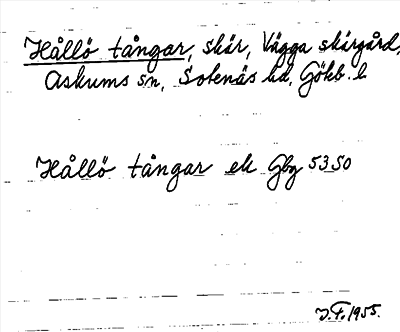 Hållö tångar, skär, Vägga skärgård,
Askums sn, Sotenäs hd, Gökb. l
Hållö tångar ek Gbg 5350
J.F. 1955.